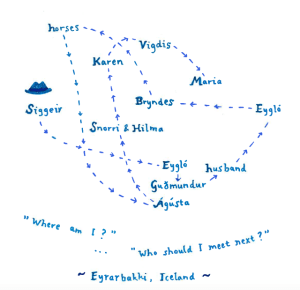 horses
Vigdis
Karen
Maria
Bryndes
Eygló
Siggeir
Snorri & Hilma
Eygló
husband
Guðmundur
Ágústa
"Where am I?"
...
"Who should I meet next?"
~ Eyrarbakki, Iceland ~